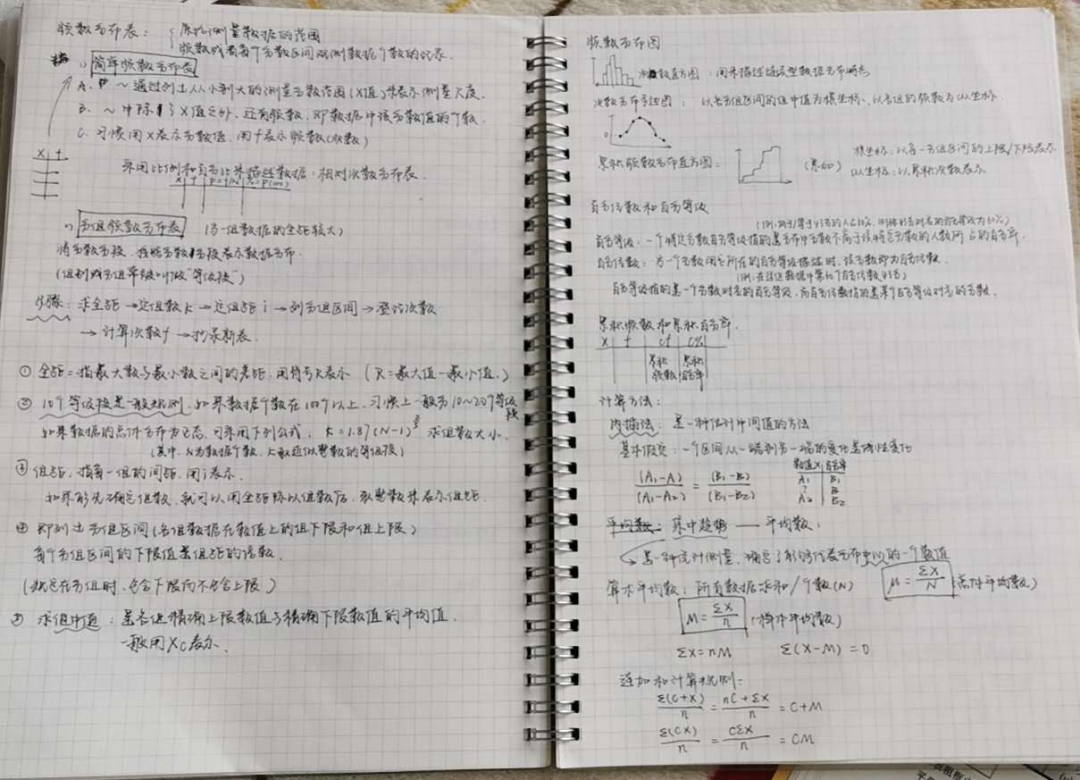 频数分布表： 原始测量数据的范围
频数或者每个分数区间观测数据个数的记录.
1) 简单频数分布表
A. ~通过列出从小到大的测量分数范围(X值)来表示测量尺度.
B. ~中除了X值之外, 还有频数, 即数据中该分数值的个数.
C. 习惯用X表示分数值, 用f表示频数(次数)
X f
采用比例和百分比来描述数据: 相对次数分布表.
X f P=f/N %=P(100)
2) 分组频数分布表 (当一组数据的全距较大)
将分数分段, 按照分数段表示数据分布.
(组别或分组等级叫做"等级段")
步骤: 求全距→定组数K→定组距i→列分组区间→登记次数
→计算次数f→抄录新表.
① 全距=指最大数与最小数之间的差距, 用符号R表示 (R=最大值-最小值.)
② 10个等级段是一般规则, 如果数据个数在100个以上, 习惯上一般为10~20个等级段
如果数据的总体分布为正态, 可采用下列公式, K=1.87(N-1)^2/5 求组数大小.
(其中, N为数据个数, K取近似整数的等级段)
③ 组距, 指每一组的间距, 用i表示.
如果能先确定组数, 就可以用全距除以组数后, 取整数来表示组距.
④ 即列出分组区间(各组数据在数值上的组下限和组上限)
每个分组区间的下限值是组距的倍数.
(缺包在分组时, 包含下限而不包含上限)
⑤ 求组中值: 是各组精确上限数值与精确下限数值的平均值.
一般用Xc表示.
频数分布图
次数直方图: 用来描述连续型数据分布特点
次数分布多边图: 以各分组区间的组中值为横坐标, 以各组的频数为纵坐标.
累积频数分布直方图: 横坐标: 以每一分组区间的上限/下限表示
纵坐标: 以累积次数表示
百分位数和百分等级
百分等级: 一个特定分数百分等级值的是分布中分数不高于该特定分数的人数所占的百分率.
百分位数: 当一个分数用它所在的百分等级描述时, 该分数即为百分位数.
百分等级值的是一个分数对应的百分等级, 而百分位数值的是某个百分等级对应的分数.
累积频数和累积百分率.
X f cf c%
累积频数 累积百分率
计算方法:
内插法: 是一种估计中间值的方法
基本假定: 一个区间从一端到另一端的变化是线性变化
数值X 百分率
A₁ B₁
? B
A₂ B₂
(A₁-A)/(A₁-A₂) = (B₁-B)/(B₁-B₂)
平均数: 集中趋势 —— 平均数:
是一种统计测量, 确定了能够代表分布中心的一个数值
算术平均数: 所有数据求和/个数(N) μ=ΣX/N (总体平均数)
M=ΣX/n (样本平均数)
ΣX=nM Σ(X-M)=0
连加和计算规则:
Σ(C+X)/n = (nC+ΣX)/n = C+M
Σ(CX)/n = CΣX/n = CM